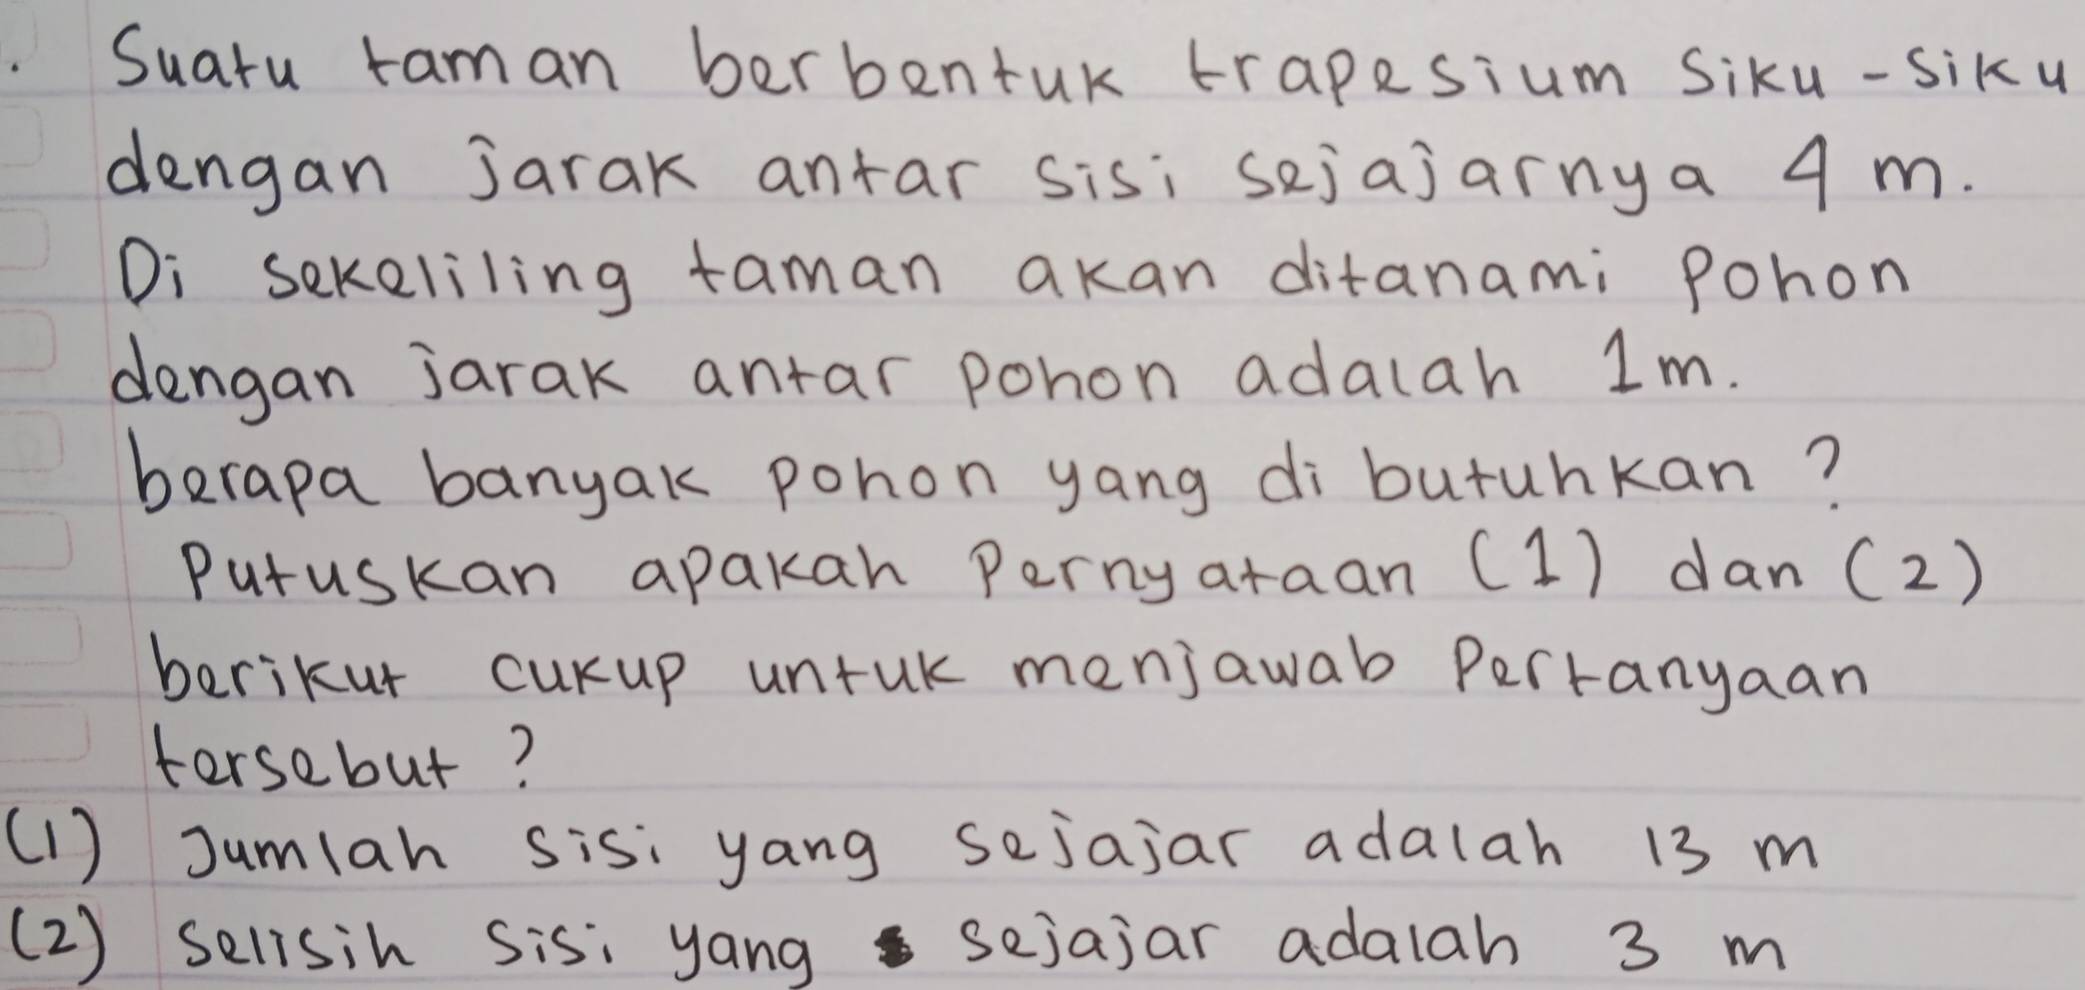 . Suatu taman berbentuk trapesium siku-siku
dengan jarak antar sisi sejajarnya 4 m.
Di sekeliling taman akan ditanami pohon
dengan jarak antar pohon adalah 1 m.
berapa banyak pohon yang di butuhkan ?
Putuskan apakah Pernyataan (1) dan (2)
berikut cukup untuk menjawab Pertanyaan
tersebut ?
(1) Jumlah sisi yang sejajar adalah 13 m
(2) Selisih sisi yang sejajar adalah 3 m